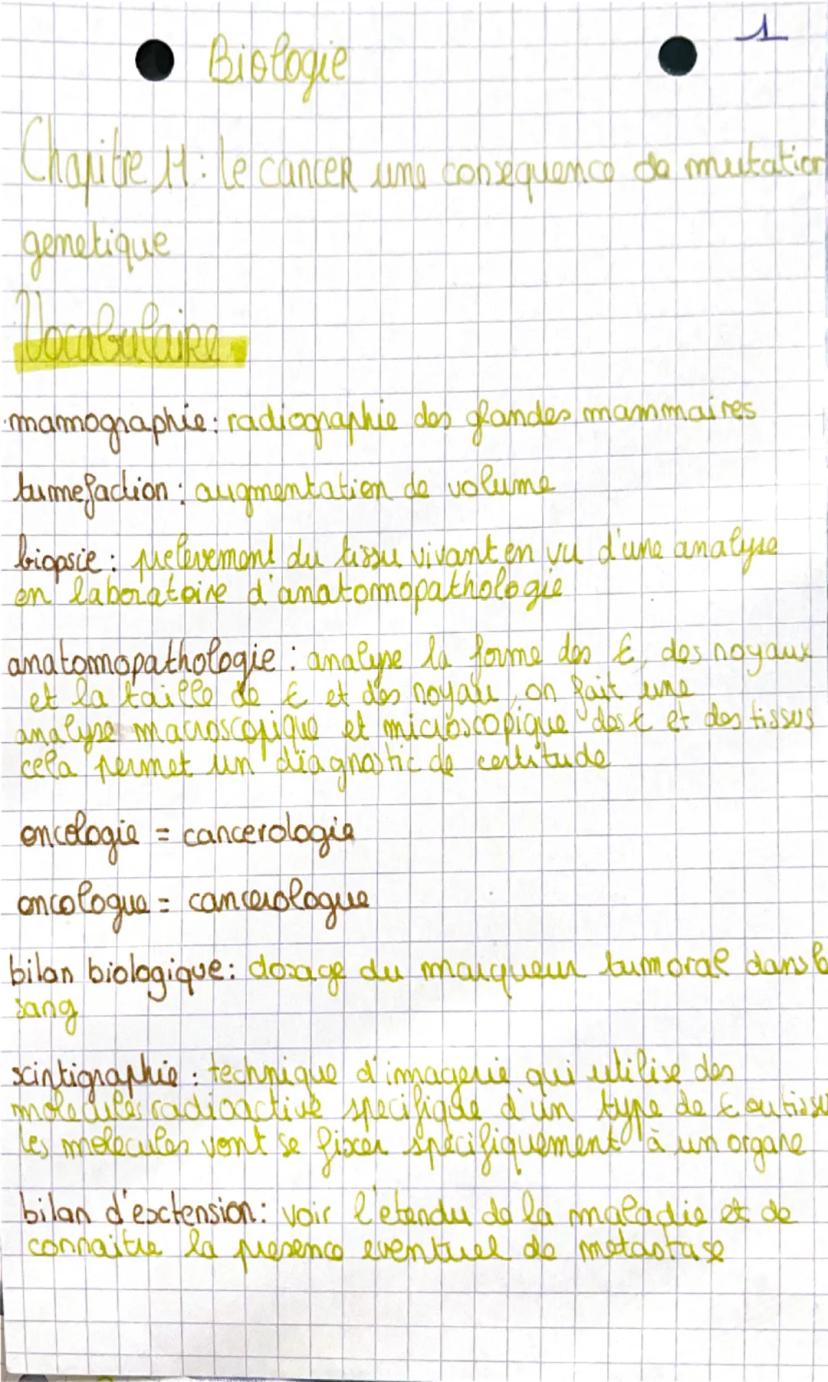 1
Biologie
Chapitre 11 : le cancer une consequence de mutation
genetique
Vocabulaire
mamographie : radiographie des glandes mammaires
tumefaction : augmentation de volume
biopsie : prelevement du tissu vivant en vu d'une analyse
en laboratoire d'anatomopathologie
anatomopathologie : analyse la forme des €, des noyaux
et la taille de € et des noyau, on fait une
analyse macroscopique et microscopique des € et des tissus
cela permet un diagnostic de certitude
oncologie = cancerologie
oncologue = cancerologue
bilan biologique : dosage du marqueur tumoral dans l
sang
scintigraphie : technique d'imagerie qui utilise des
molecules radioactive specifique d'un type de € ou tissu
les molecules vont se fixer specifiquement à un organe
bilan d'extension : voir l'etendu de la maladie et de
connaitre la presence eventuel de metastase